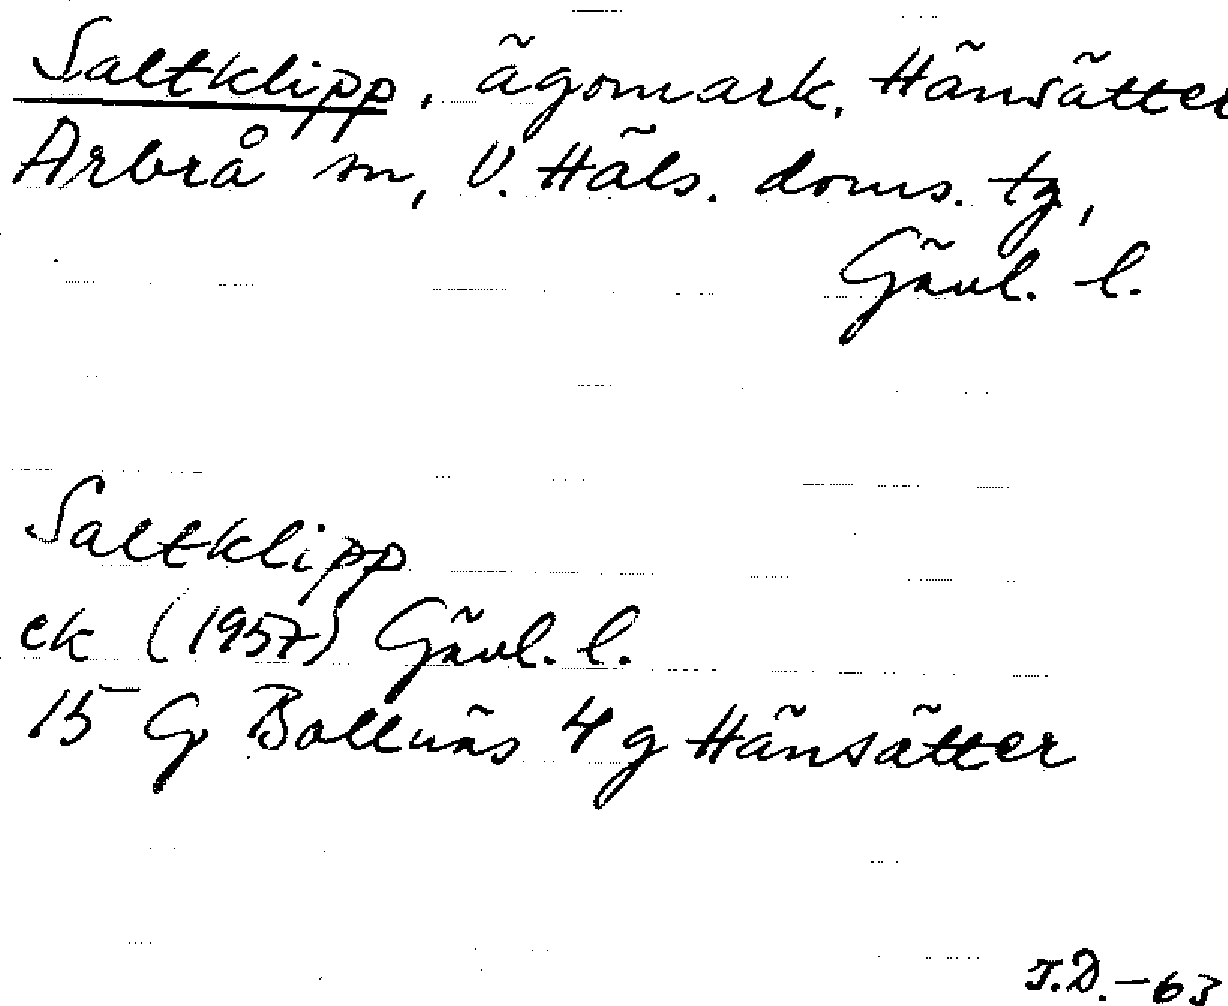 Saltklipp, ägomark, Hänsätter
Arbrå sn, V. Häls. doms. tg,
Gävl. l.
Saltklipp
ek (1957) Gävl. l.
15 G Bollnäs 4 g Hänsätter
J.D. -63